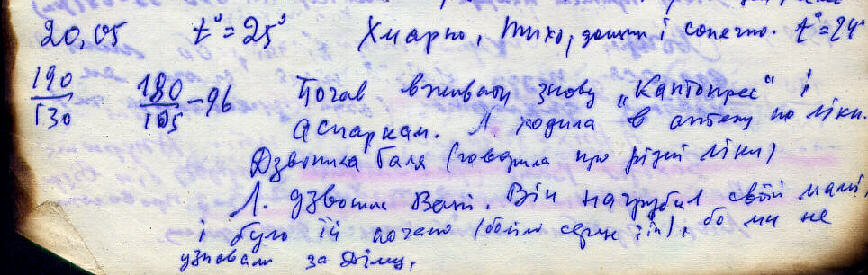 20,05 t°=25° Хмарно, тихо, далі і сонечно. t°=24°
190/130 180/105 – 96 Почав вживати знову „Каптопрес" і
Аспаркам. Л ходила в аптеку по ліки.
Дзвонила Галя (говорила про різні ліки)
Л. дзвонила Вані. Він нагрубив своїй мамі,
і було їй погано (боліло серце їй), бо ми не
узнавали за Діму.